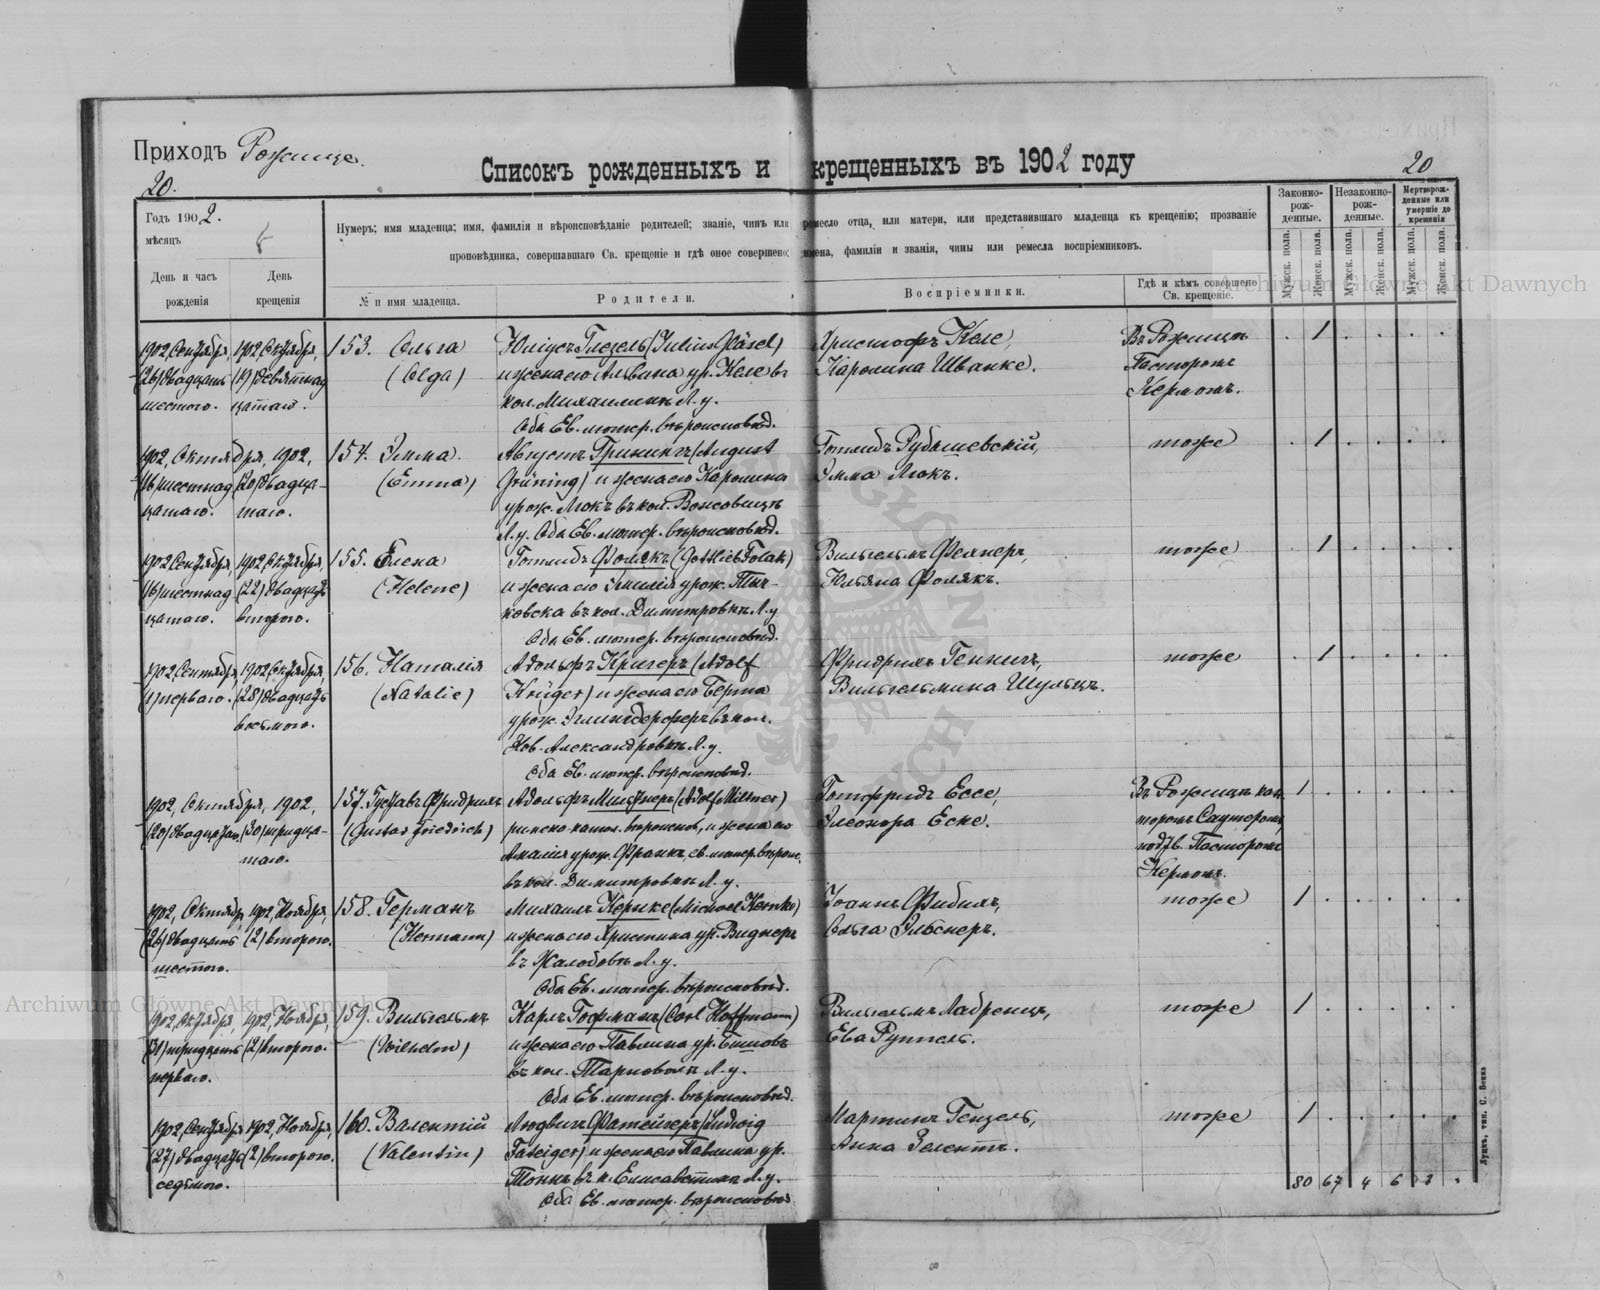 Приходъ Рожище.
Списокъ рожденныхъ и крещенныхъ въ 1902 году
20.
20
Годъ 1902.
мѣсяцъ
День и часъ
рожденія
День
крещенія
Нумеръ; имя младенца; имя, фамилія и вѣроисповѣданіе родителей; званіе, чинъ или ремесло отца, или матери, или представившаго младенца къ крещенію; прозваніе
проповѣдника, совершавшаго Св. крещеніе и гдѣ оное совершено; имена, фамиліи и званія, чины или ремесла воспріемниковъ.
№ и имя младенца.
Родители.
Воспріемники.
Гдѣ и кѣмъ совершено
Св. крещеніе.
Законно-
рож-
денные.
Незаконно-
рож-
денные.
Мертворож-
денные или
умершіе до
крещенія
Мужск. пола.
Женск. пола.
Мужск. пола.
Женск. пола.
Мужск. пола.
Женск. пола.
1902, Сентября, 1902, Октября, 153. Ольга Юліусъ Глезель (Julius Gläsel) Христофъ Келе, Въ Рожищѣ 1
(26) двадцать (19) девятнад (Olga) и жена его Альвина ур. Келе въ Каролина Шванке. Пасторомъ
шестого. цатаго. кол. Михаилинъ Л. у. Кермомъ.
Оба Ев. лютер. вѣроисповѣд.
1902, Октября, 1902, 154. Эмма. Августъ Грининг (August Готлибъ Рубашевскій, тоже 1
(16) шестнад (20) двадца- (Emma) Grüning) и жена его Каролина Эмма Люкъ.
цатаго. таго. урож. Люкъ въ кол.
Л. у. Оба Ев. лютер. вѣроисповѣд.
1902, Сентября, 1902, Октября, 155. Елена Готлибъ Фолякъ (Gottlieb Folak) Вильгельмъ тоже 1
(16) шестнад (22) двадцать (Helene) и жена его Эмилія урож. Фолякъ.
цатаго. второго. ковска въ кол. Димитровкѣ Л. у.
Оба Ев. лютер. вѣроисповѣд.
1902, Сентября, 1902, Октября, 156. Наталія Адольфъ Кригеръ (Adolf Фридрихъ Генкигъ, тоже 1
(1) перваго. (28) двадцать (Natalie) Krüger) и жена его Берта Вильгельмина Шульцъ.
восьмого. урож. въ кол.
Нов. Александровкѣ Л. у.
Оба Ев. лютер. вѣроисповѣд.
1902, Октября, 1902, 157. Густавъ Фридрихъ Адольфъ Мильнеръ (Adolf Milsner) Готфридъ Ессе, Въ Рожищѣ кан- 1
(20) двадцатаго (30) тридца- (Gustav Friedrich) римско-катол. вѣроиспов., и жена его Элеонора Еске. торомъ Саутеромъ,
таго. Амалія урож. Франкъ, ев. лютер. вѣроис. подтв. Пасторомъ
въ кол. Димитровкѣ Л. у. Кермомъ.
1902, Октября, 1902, Ноября, 158. Германъ Михаилъ Кернке (Michael Kernke) Іоаннъ Фибихъ, тоже 1
(26) двадцать (2) второго. (Hermann) и жена его Христина ур. Виднеръ Ольга Эльснеръ.
шестого. въ Жалобовъ Л. у.
Оба Ев. лютер. вѣроисповѣд.
1902, Октября, 1902, Ноября, 159. Вильгельмъ Карлъ Гофманъ (Carl Hoffmann) Вильгельмъ Лабренцъ, тоже 1
(31) тридцать (2) второго. (Wilhelm) и жена его Павлина ур. Ева Руппель.
перваго. въ кол. Л. у.
Оба Ев. лютер. вѣроисповѣд.
1902, Сентября, 1902, Ноября, 160. Валентій Людвигъ Фатейгеръ (Ludwig Мартинъ Гензель, тоже 1
(27) двадцать (2) второго. (Valentin) Fateiger) и жена его Павлина ур. Анна Зелентъ.
седьмого. Тонкъ въ к. Елисаветинъ Л. у.
Оба Ев. лютер. вѣроисповѣд.
80 67 4 6 3 .
Луцкъ, тип. С. Бонка
Archiwum Główne Akt Dawnych
Archiwum Główne Akt Dawnych